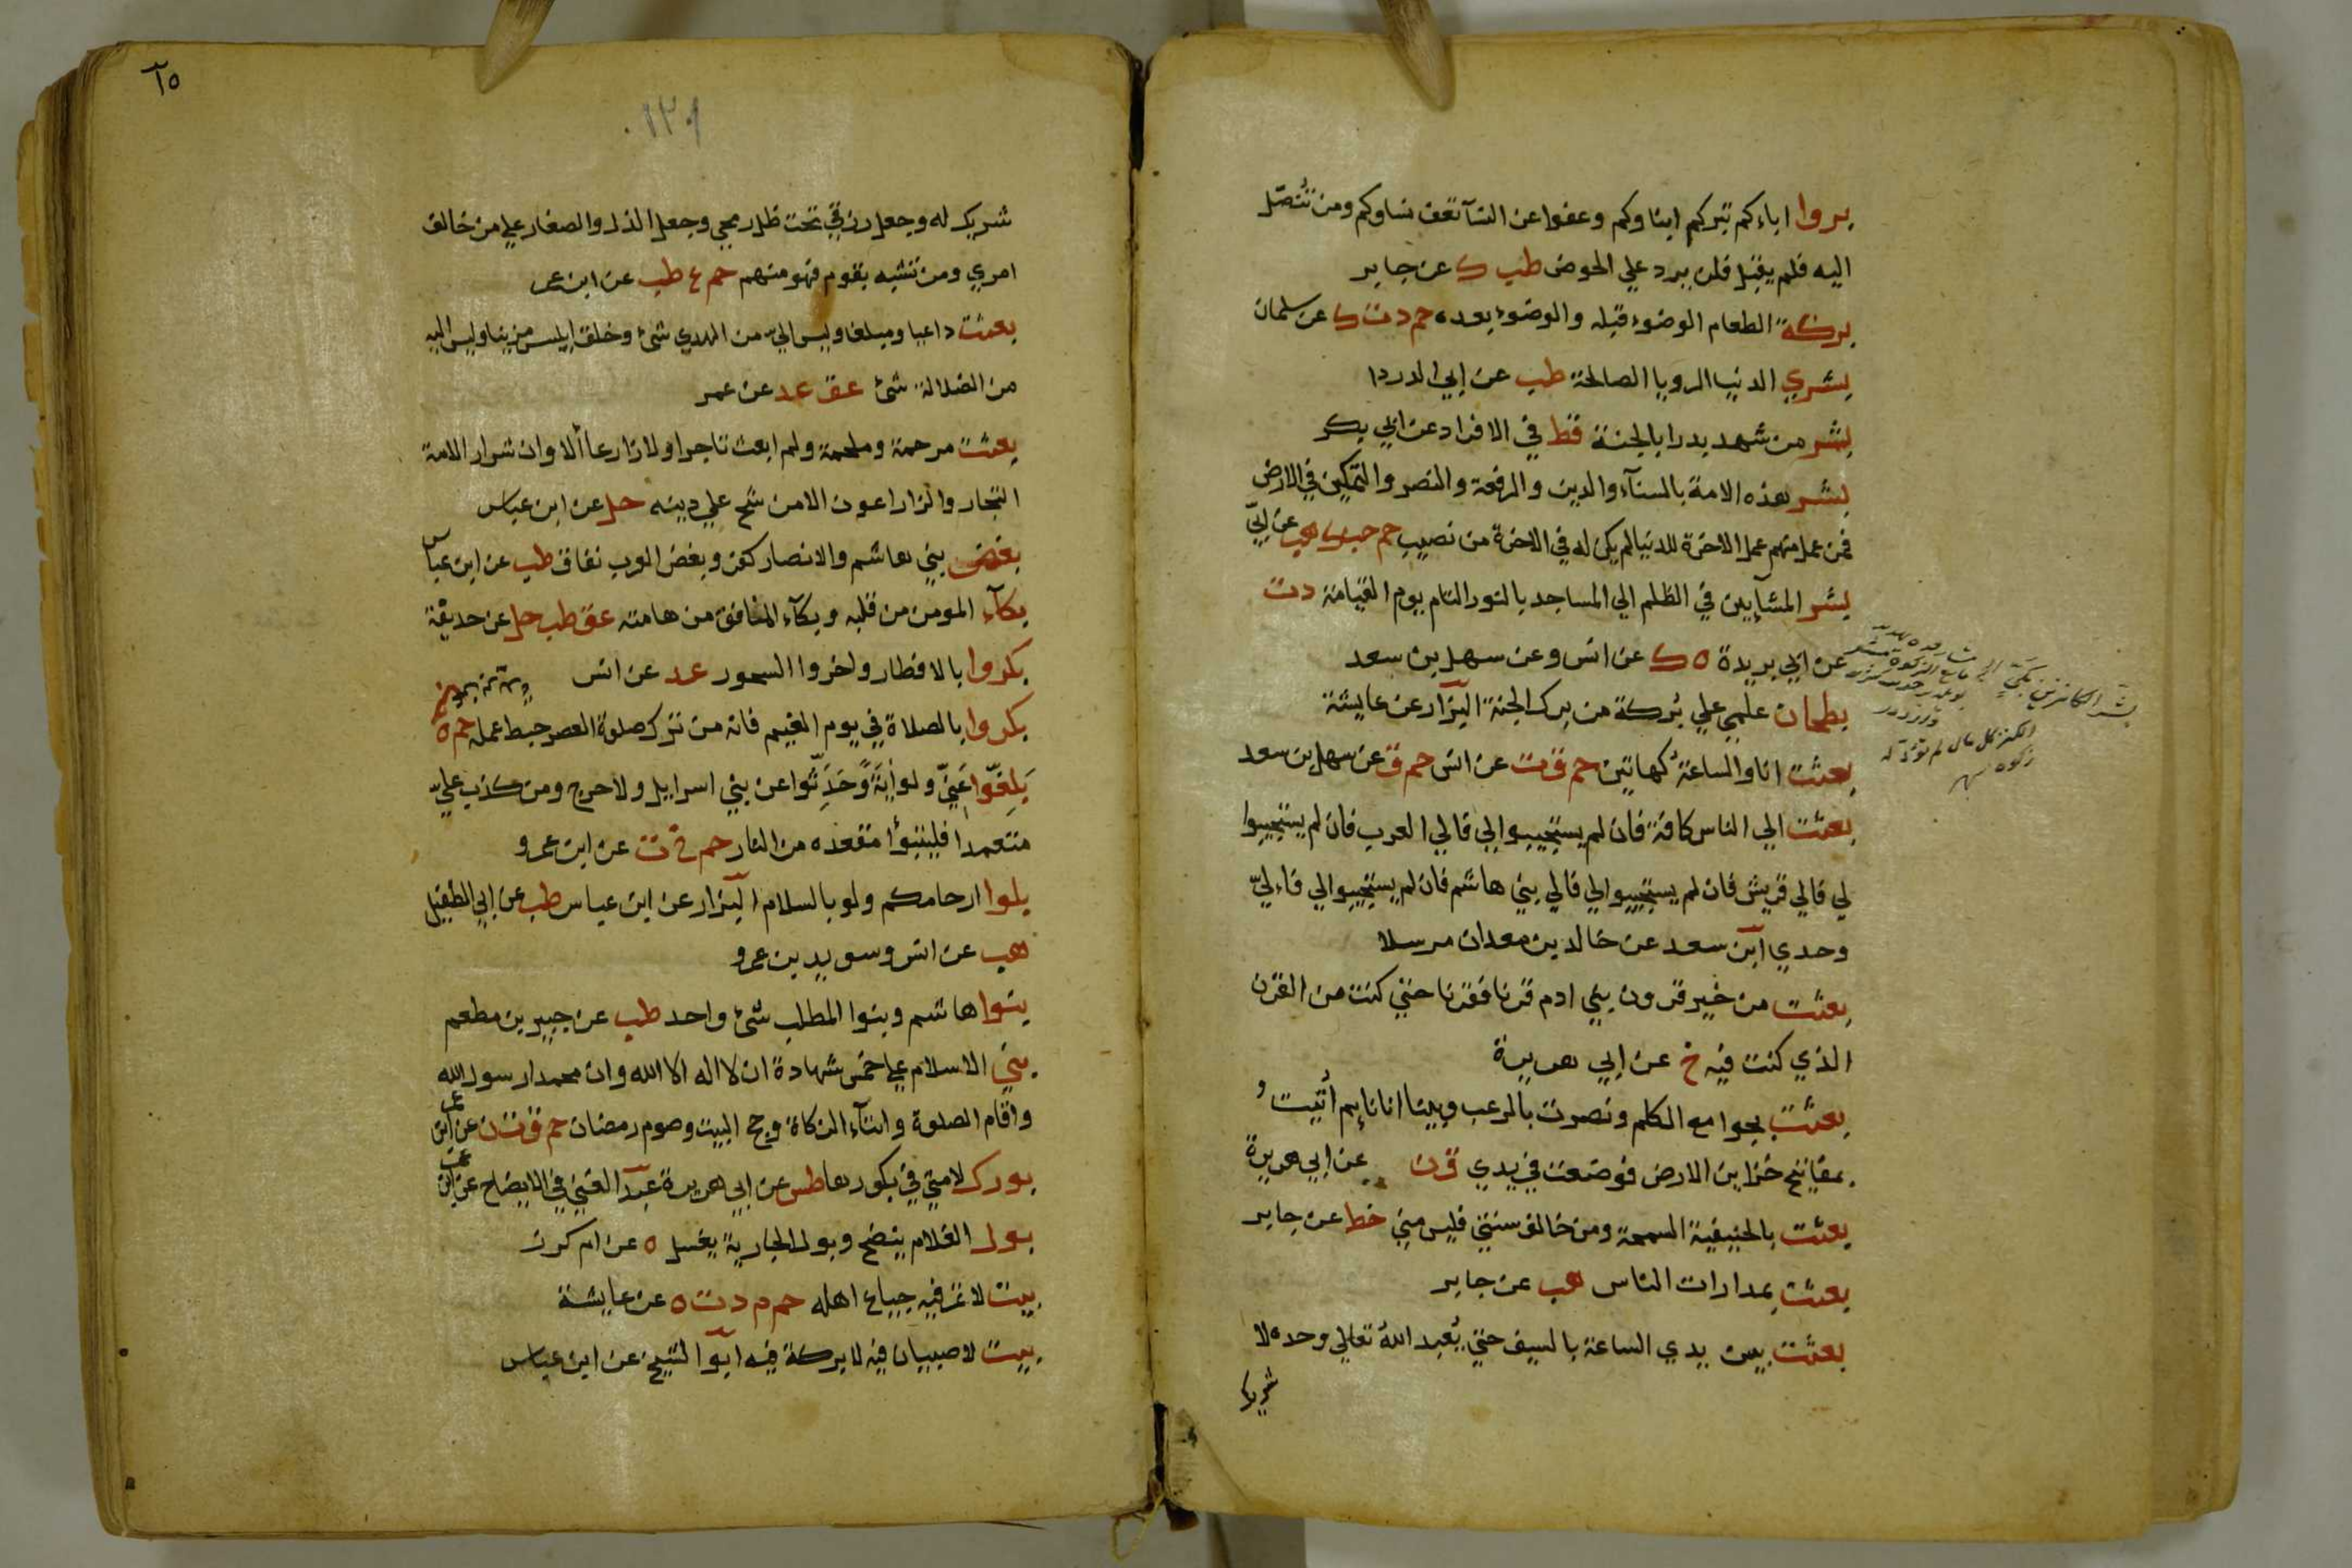 بروا اباءكم تبركم ابناوكم وعفوا عن النسآ تعف نساوكم ومن تُنصّل
اليه فلم يقبل فلن يرد علي الحوض طب ك عن جابر
بركة الطعام الوضوء قبله والوضوء بعده حم د ت ك عن سلمان
بشري الدنيا الرويا الصالحة طب عن ابي الدردا
بشر من شهد بدرا بالجنة قط في الافراد عن ابي بكر
بشر هذه الامة بالسنآء والدين والرفعة والنصر والتمكين في الارض
فمن عمل منهم عمل الاخرة للدنيا لم يكن له في الاخرة من نصيب حم حب ك هب عن ابيّ
بشر المشآيين في الظلم الي المساجد بالنور التام يوم القيامة د ت
عن ابي بريدة ه ك عن انس وعن سهل بن سعد
بطحان علي بُركة من برك الجنة البزّار عن عايشة
بعثت انا والساعةُ كهاتين حم ق ت عن انس حم ق عن سهل بن سعد
بعثت الي الناس كافة فان لم يستجيبوا لي فالي العرب فان لم يستجيبوا
لي فالي قريش فان لم يستجيبوا لي فالي بني هاشم فان لم يستجيبوا لي فاءليّ
وحدي ابن سعد عن خالد بن معدان مرسلا
بعثت من خير قرون بني ادم قرنا فقرنا حتي كنت من القرن
الذي كنت فيه خ عن ابي هريرة
بعثت بجوامع الكلم ونصرت بالرعب وبينا انا نايم اُتيتُ
بمفاتيح خزاين الارض فوضعت في يدي ق ن عن ابي هريرة
بعثت بالحنيفية السمحة ومن خالف سنتي فليس مني خط عن جابر
بعثت بمدارات الناس هب عن جابر
بعثت بين يدي الساعة بالسيف حتي يُعبد اللهُ تعالي وحده لا
شريك
بشر الكانزين بكيّ
الكنز كل مال لم تؤد
زكوة
١٢٩
٦٥
شريك له وجعل رزقي تحت ظل رمحي وجعل الذل والصغار علي من خالف
امري ومن تشبه بقوم فهو منهم حم ع طب عن ابن عمر
بعثت داعيا ومبلغا وليس اليّ من الهدي شئ وخلق ابليس مزينا وليس اليه
من الضلالة شئ عق عد عن عمر
بعثت مرحمة وملحمة ولم ابعث تاجرا ولا زارعا ألا وان شرار الامة
التجار والزراعون الا من شح علي دينه حل عن ابن عباس
بغض بني هاشم والانصار كفر وبغض العرب نفاق طب عن ابن عباس
بكآء المومن من قلبه وبكآء المنافق من هامته عق طب حل عن حديقة
بكروا بالافطار واخروا السحور عد عن انس
بكروا بالصلاة في يوم الغيم فانه من ترك صلوة العصر حبط عمله حم ه
بَلِغّوا عَنيّ ولو اٰيَةً وَّحَدِّثُوا عن بني اسرايل ولا حرج ومن كذب عليّ
متعمدا فليتبوأ مقعده من النار حم خ ت عن ابن عمرو
بلوا ارحامكم ولو بالسلام البزّار عن ابن عباس طب عن ابي الطفيل
هب عن انس وسويد بن عمرو
بنوا هاشم وبنوا المطلب شئ واحد طب عن جبير بن مطعم
بني الاسلام علي خمس شهادة ان لا اله الا الله وان محمدا رسول الله
واقام الصلوة وايتآء الزكاة وحج البيت وصوم رمضان حم ق ت ن عن ابن عمر
بورك لامتي في بكورها طس عن ابي هريرة عبد الغني في الايضاح عن ابن عمر
بول الغلام ينضح وبول الجارية يغسل ه عن ام كرز
بيت لا تمر فيه جياع اهله حم م د ت ه عن عايشة
بيت لا صبيان فيه لا بركة فيه ابوا لشيخ عن ابن عباس